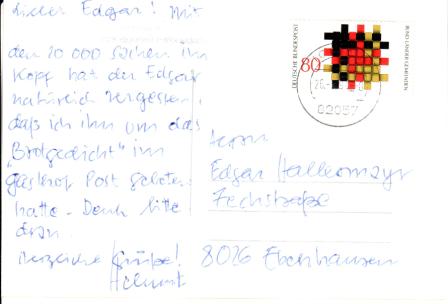 Lieber Edgar! Mit
den 20 000 Sachen im
Kopf hat der Edgar
natürlich vergessen,
daß ich ihn um das
"Brotgedicht" im
Gasthof Post gebeten
hatte - Denk bitte
dran.
Herzliche Grüße!
Helmut
DEUTSCHE BUNDESPOST
80
Herrn
Edgar
8026 Ebenhausen